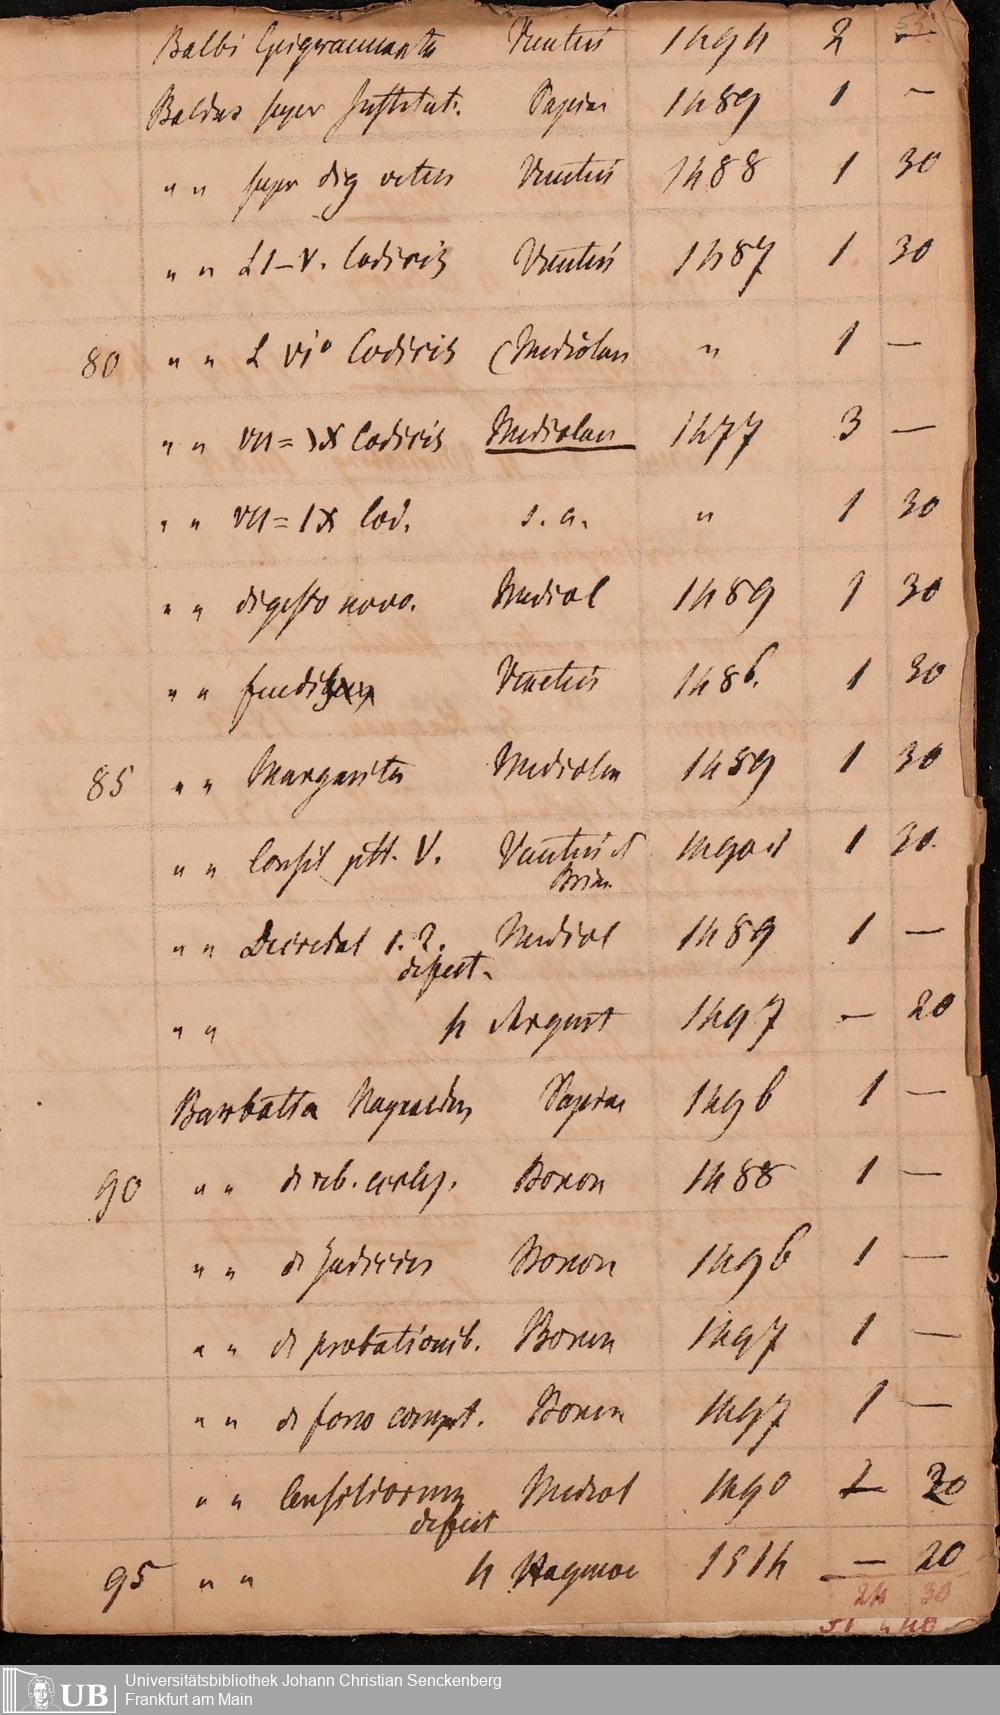 Balbi Epigrammata Venetiis 1494 2 —
Baldus super Institut. Papiae 1489 1 —
" " super dig vetus Venetiis 1488 1 30
" " L I–V. Codicis Venetiis 1487 1 30
80 " " L VIo Codicis Mediolan " 1 —
" " VII = IX Codicis Mediolan 1477 3 —
" " VII = IX Cod. s. a. " 1 30
" " digesto novo. Mediol 1489 1 30
" " feudi Venetiis 1486. 1 30
85 " " Margarita Mediolan 1489 1 30
" " Consil ptt. V. Venetiis et 1490 et 1 30.
Brix.
" " Decretal 1. 2. Mediol 1489 1 —
defect.
" " 4 August 1497 — 20
Barbatia Papiae 1496 1 —
90 " " de reb. eccles. Bonon 1488 1 —
" " de Judiciis Bonon 1496 1 —
" " de probationib. Bonon 1497 1 —
" " de foro compet. Bonon 1497 1 —
" " Consiliorum Mediol 1490 20
defect
95 " " 4 Hagenoe 1514 — 20
24 30
51 " 40
Universitätsbibliothek Johann Christian Senckenberg
Frankfurt am Main
UB